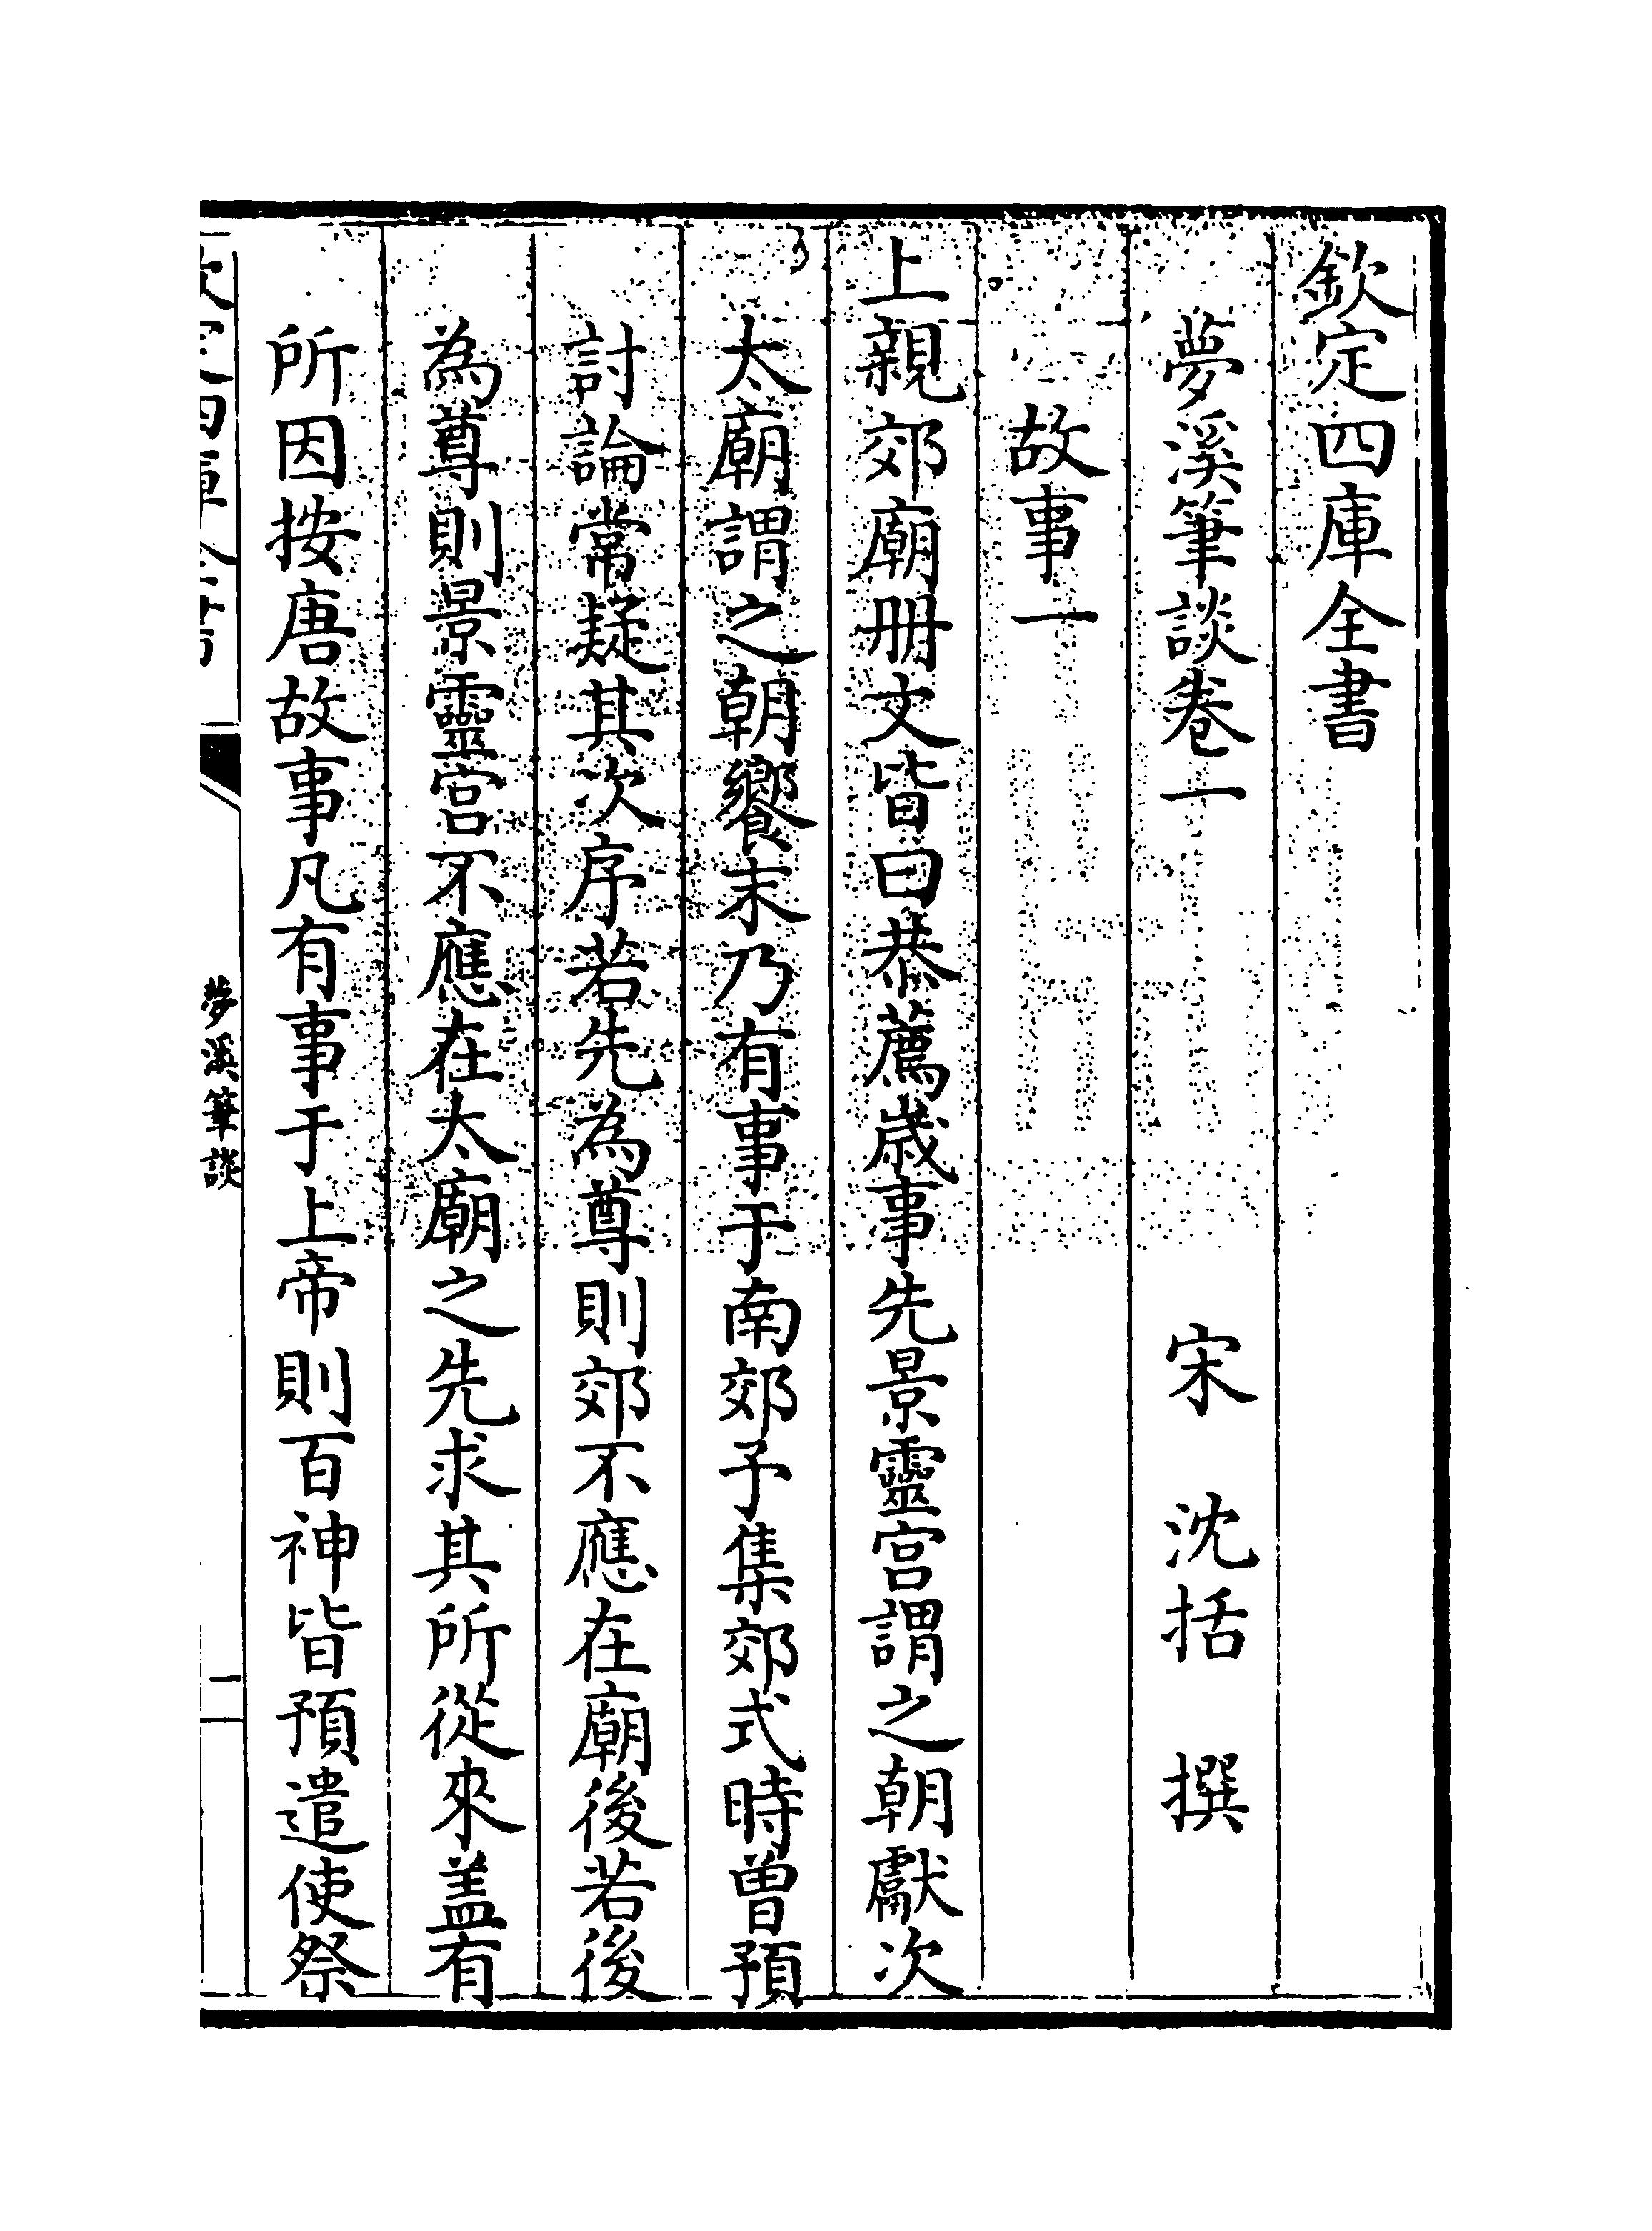 欽定四庫全書
夢溪筆談卷一
宋 沈括 撰
故事一
上親郊廟冊文皆曰恭薦歲事先景靈宮謂之朝獻次
太廟謂之朝饗末乃有事于南郊予集郊式時曾預
討論常疑其次序若先為尊則郊不應在廟後若後
為尊則景靈宮不應在太廟之先求其所從來盖有
所因按唐故事凡有事于上帝則百神皆預遣使祭
夢溪筆談
一